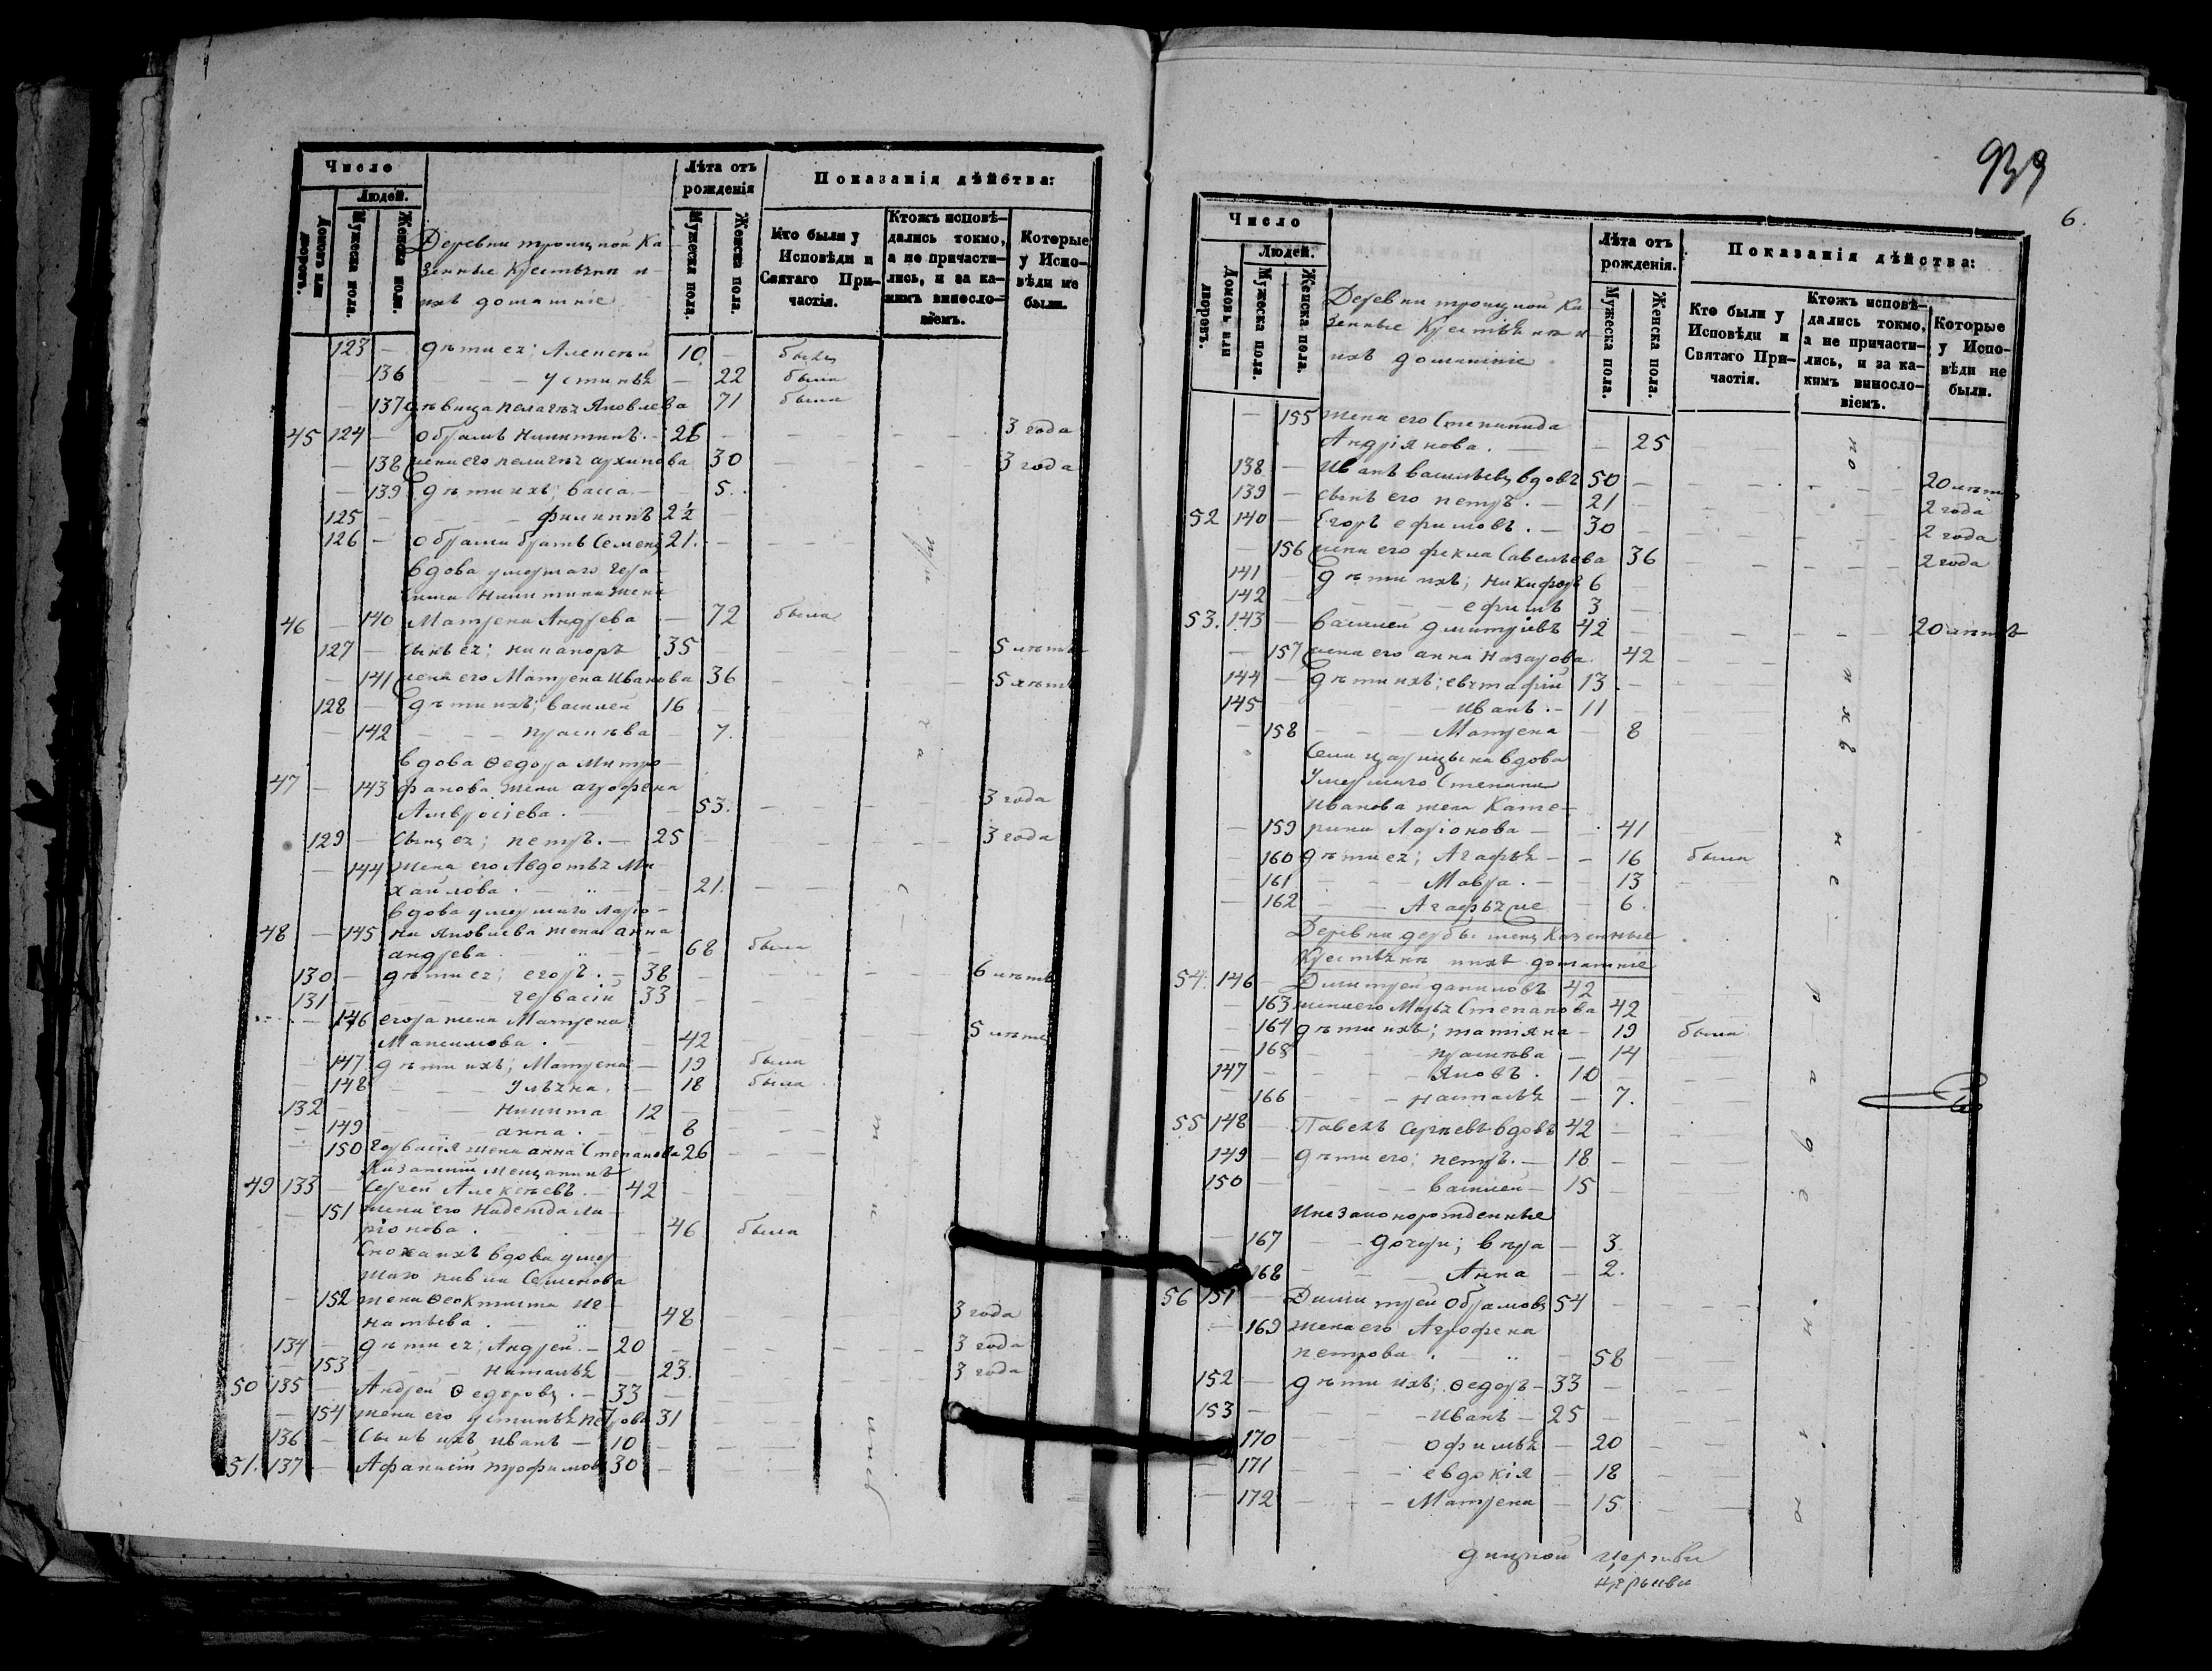 Число
Людей.
Домовъ или дворовъ.
Мужеска пола.
Женска пола.
Деревни троицной Ка-
зенные крестьяни и
ихъ домашніе
Лѣта отъ рожденія
Мужеска пола.
Женска пола.
Показанія дѣйства:
Кто были у Исповѣди и Святаго Причастія.
Ктожъ исповѣдались токмо, а не причастились, и за какимъ винословіемъ.
Которые у Исповѣди не были.
123 — дѣти ея; Алексѣй 10 — былъ
136 — — Устинья — 22 была
— 137 дѣвица Пелагея Яковлева 71 была
45 124 — Обрамъ Никитинъ. — 26 — — — 3 года
— 138 жена его Пелагея Архипова 30 — — 3 года
— 139 дѣти ихъ; Васса. — — 5.
125 — — Филиппъ 2½ —
126 — Обрама братъ Семенъ 21. — —
вдова умершаго Гера-
сима Никитина жена
46 — 140 Матрена Андрева — 72 была
127 — сынъ ея; Никаноръ 35 — — 5 лѣтъ
— 141 жена его Матрена Иванова 36 — — 5 лѣтъ
128 — дѣти ихъ; Василей 16 —
— 142 — — Прасковья — 7.
вдова Ѳедора Митро-
47 — 143 фанова жена Агрофена
Амвросіева. — — 53. — — 3 года
129 — сынъ ея; Петръ. — 25 — — 3 года
— 144 жена его Авдотья Ми-
хайлова. — — 21. — —
вдова умершаго Ларіо-
48 — 145 на Яковлева жена Анна
Андрева — — 68 была
130 — дѣти ея; Егоръ. — 38 — — 6 лѣтъ
131 — — Гервасій 33 — —
— 146 Егора жена Матрена
Максимова. — — 42 — — 5 лѣтъ
— 147 дѣти ихъ; Матрена — 19 была
— 148 — — Ульяна. — 18 была
132 — — Никита 12 — —
— 149 — — Анна. — — 8
— 150 Гервасія жена Анна Степанова 26 — —
Казанскій мещанинъ
49 133 — Сергей Алексѣевъ. — 42 —
— 151 жена его Надежда Ла-
ріонова. — — 46 была
Сноха ихъ вдова умер-
шаго Павла Семенова
— 152 жена Ѳеоктиста Иг-
натьева. — — 48 — — 3 года
134 — дѣти ея; Андрей. — 20 — — 3 года
— 153 — — Наталья — 23. — — 3 года
50 135 — Андрей Ѳедоровъ. — 33 —
— 154 жена его Устинья Петрова 31 — —
136 — сынъ ихъ Иванъ — 10 — —
51. 137 — Афанасій Трофимовъ 30 —
При час т и лись
939
6.
Число
Людей.
Домовъ или дворовъ.
Мужеска пола.
Женска пола.
Деревни троицной Ка-
зенные крестьяне и
ихъ домашніе
Лѣта отъ рожденія.
Мужеска пола.
Женска пола.
Показанія дѣйства:
Кто были у Исповѣди и Святаго Причастія.
Ктожъ исповѣдались токмо, а не причастились, и за какимъ винословіемъ.
Которые у Исповѣди не были.
— 155 жена его Степанида
Андріянова. — — 25
138 — Иванъ Васильевъ вдовъ 50 — — 20 лѣтъ
139 — сынъ его Петръ. — 21 — — 2 года
52 140 — Егоръ Ефимовъ. — 30 — — 2 года
— 156 жена его Фекла Савельева 36 — — 2 года
141 — дѣти ихъ; Никифоръ 6 —
142 — — Ефимъ 3 —
53. 143 — Василей Дмитріевъ 42 — — 20 лѣтъ
— 157 жена его Анна Назарова. 42 — —
144 — дѣти ихъ; Евстафій 13 —
145 — — Иванъ. — 11 —
— 158 — — Матрена — 8
Села Царицына вдова
умершаго Степана
Иванова жена Кате-
— 159 рина Ларіонова — — 41 —
— 160 дѣти ея; Агафья — — 16 была
— 161 — — Мавра. — — 13 —
— 162 — — Агафья же — 6.
Деревни Дербышекъ Казенные
Крестьяне и ихъ домашніе
54. 146 — Димитрей Даниловъ 42 —
— 163 жена его Марья Степанова 42
— 164 дѣти ихъ; Татіяна — 19 была
— 165 — — Прасковья — 14
147 — — Яковъ. 10 —
— 166 — — Настасья — 7.
55 148 — Павелъ Сергѣевъ вдовъ 42 —
149 — дѣти его; Петръ. — 18 —
150 — — Василей — 15 —
Инезаконорожденные
— 167 — дочери; Вера — 3.
168 — — Анна — 2.
56 151 — Димитрей Обрамовъ 54 —
— 169 жена его Агрофена
Петрова. — — 58
152 — дѣти ихъ; Ѳедоръ — 33 —
153 — — Иванъ — 25 —
170 — — Офимья — 20
— 171 — — Евдокія — 18
— 172 — — Матрена — 15
по ихъ не радению
церкви